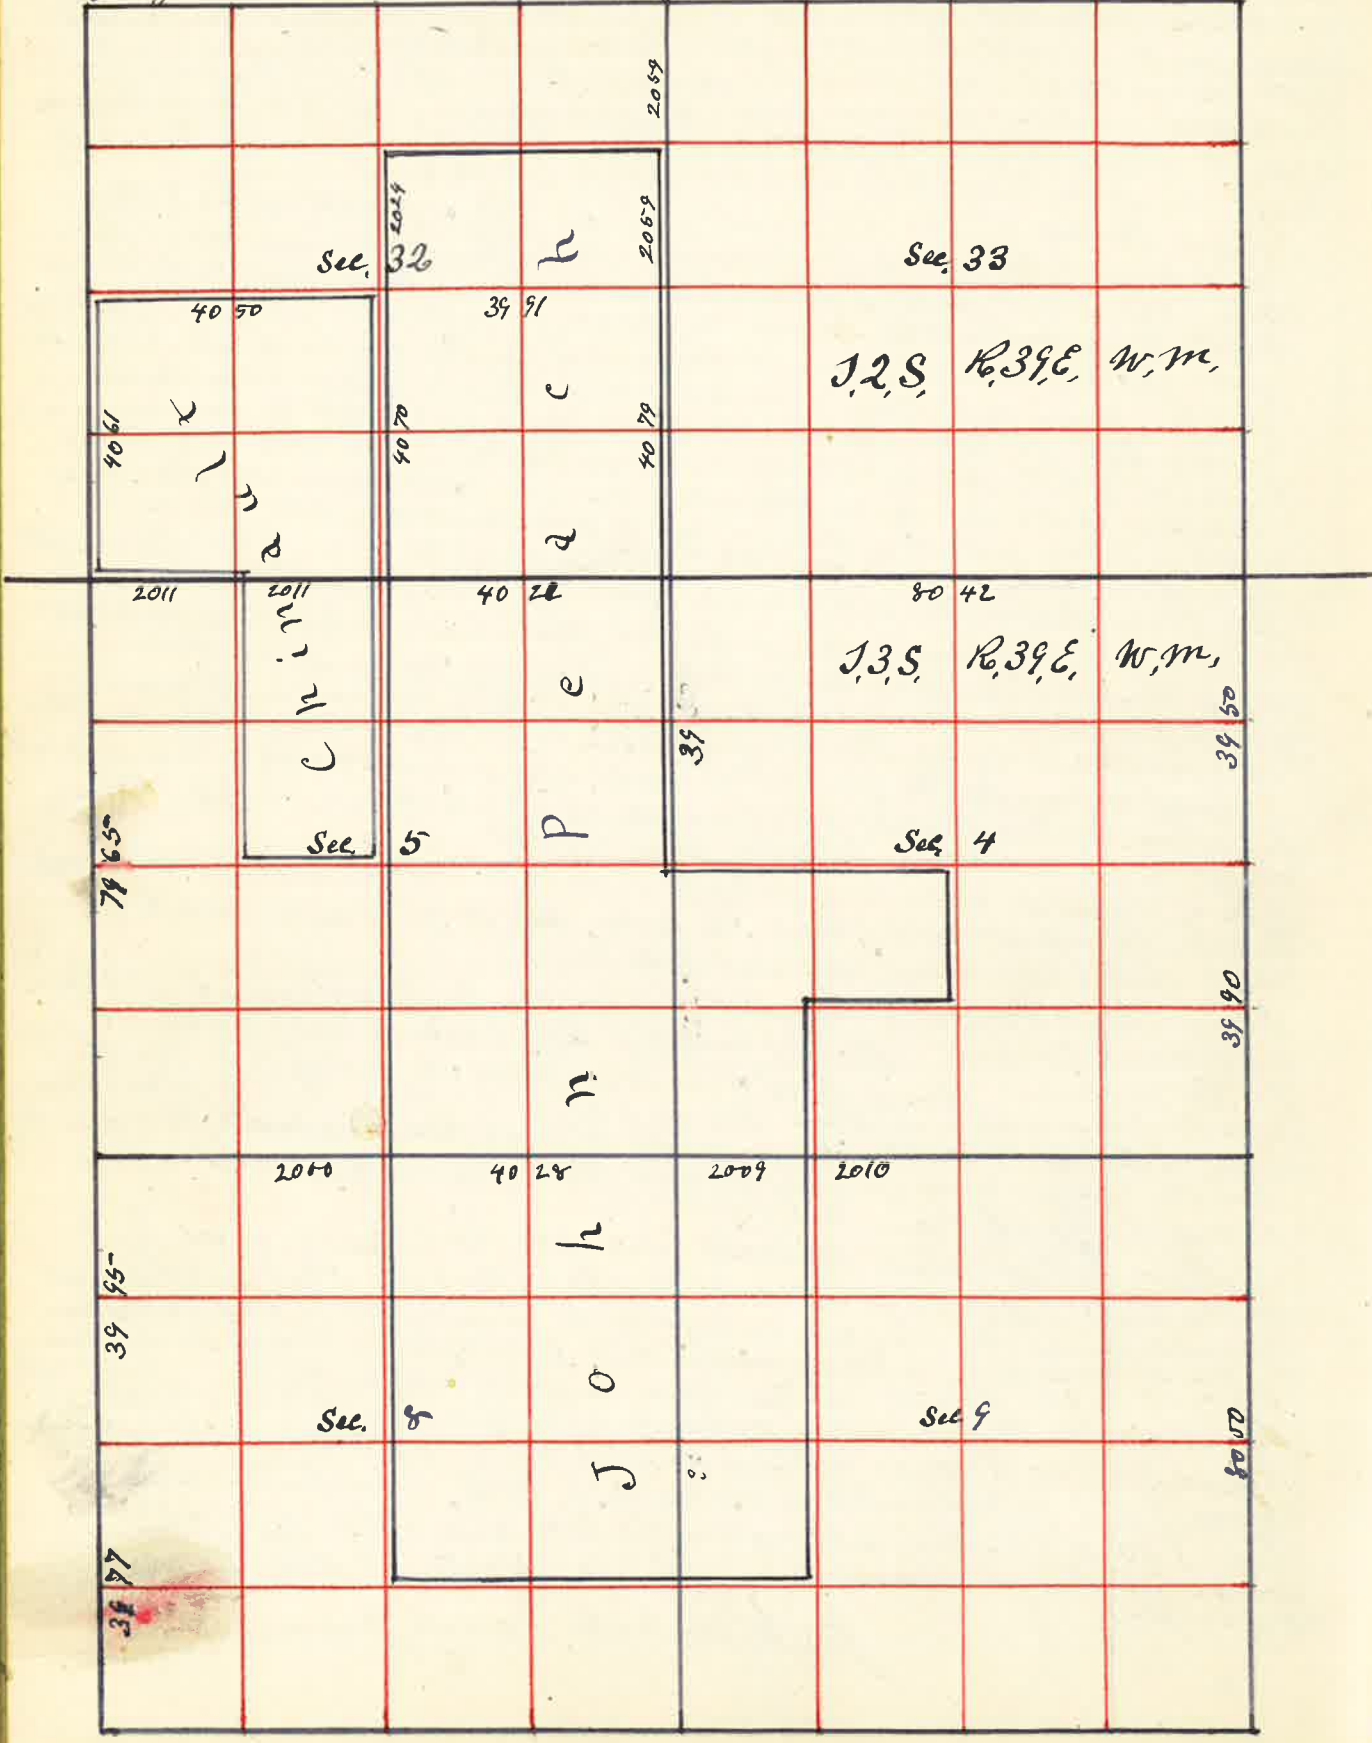 2059
2024
2059
Sec. 32
Sec. 33
40 50
39 91
T.2,S. R.39,E. W.M.
40 61
40 70
40 79
2011
2011
80 42
T.3,S. R.39,E. W.M.
39 50
39
Sec. 5
Sec. 4
79 65
39 90
2000
40 28
2009
2010
39 95
Sec. 8
Sec 9
80 00
John Pedach